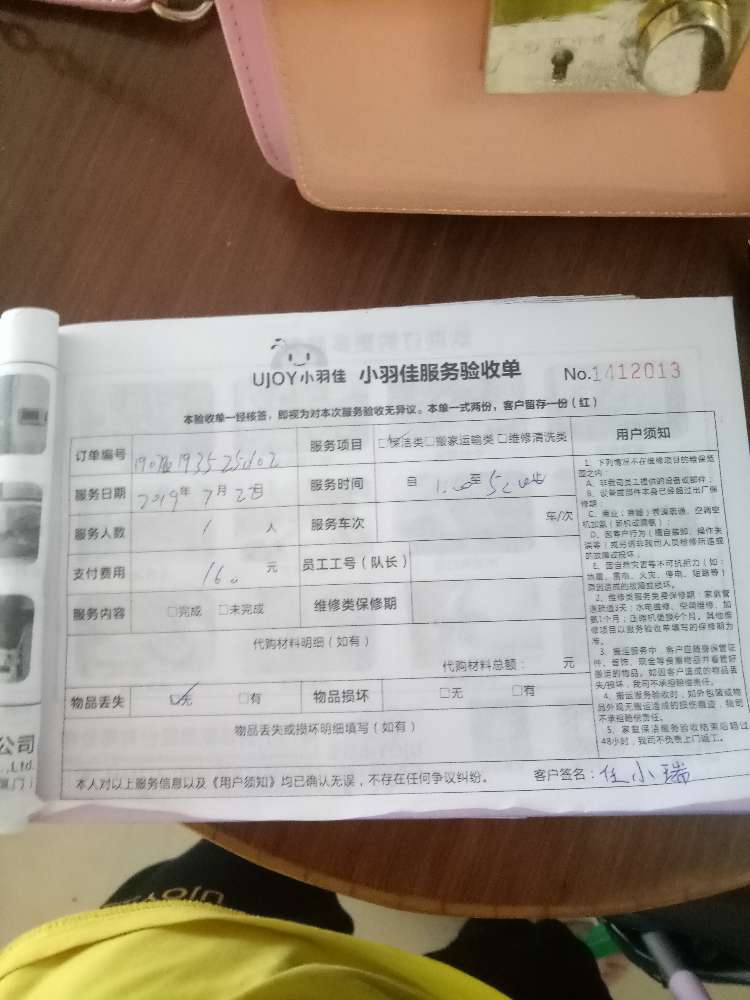 UJOY小羽佳 小羽佳服务验收单 No.1412013
本验收单一经核签，即视为对本次服务验收无异议。本单一式两份，客户留存一份（红）
订单编号 服务项目 □保洁类□搬家运输类 □维修清洗类 用户须知
服务日期 2019年 7月2日 服务时间 自 至
服务人数 1 人 服务车次 车/次
支付费用 160 元 员工工号（队长）
服务内容 □完成 □未完成 维修类保修期
代购材料明细（如有）
代购材料总额： 元
物品丢失 □无 □有 物品损坏 □无 □有
物品丢失或损坏明细填写（如有）
本人对以上服务信息以及《用户须知》均已确认无误，不存在任何争议纠纷。 客户签名：任小瑞
1、下列情况不在维修项目的维保范
围之内：
A、非我司员工提供的设备或部件；
B、设备或部件本身已经超过出厂保
修期；
D、因客户行为（擅自装卸、操作失
误等）或另请非我司人员检修所造成
的故障或损坏；
E、因自然灾害等不可抗拒力（如：
地震、雷电、火灾、停电、短路等）
原因造成的故障或损坏。
2、维修类服务免费保修期：家庭管
道疏通3天；水电维修、空调维修、加
氨1个月；压缩机更换6个月。其他维
修项目以服务验收单填写的保修期为
准。
3、搬运服务中，客户应随身保管证
件、首饰、现金等贵重物品并看管好
搬运的物品。如因客户造成的物品丢
失/损坏，我司不承担赔偿责任。
4、搬运服务验收时，如外包装或物
品外观无搬运造成的损伤痕迹，我司
不承担赔偿责任。
5、家庭保洁服务验收结束后超过
48小时，我司不负责上门返工。
公司
.,Ltd.